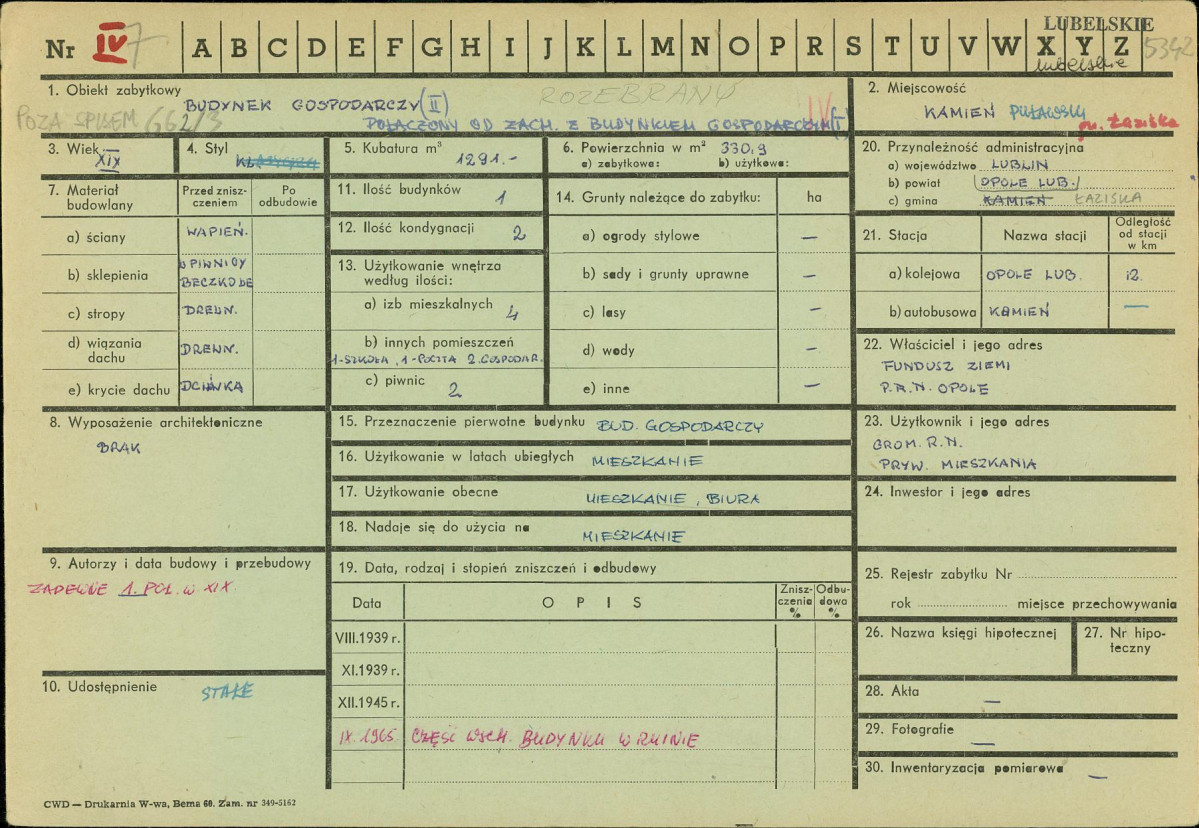 LUBELSKIE
Nr IV 7 A B C D E F G H I J K L M N O P R S T U V W X Y Z 5342
lubelskie
1. Obiekt zabytkowy ROZEBRANY
BUDYNEK GOSPODARCZY (II)
POZA SPISEM 662/3 POŁĄCZONY OD ZACH. Z BUDYNKIEM GOSPODARCZYM (I
2. Miejscowość
KAMIEŃ PUŁAWSKI
gm. Łaziska
3. Wiek XIX
4. Styl
5. Kubatura m³ 1291.-
6. Powierzchnia w m² 330,9
a) zabytkowa: b) użytkowa:
20. Przynależność administracyjna
a) województwo LUBLIN
b) powiat OPOLE LUB.
c) gmina KAMIEŃ ŁAZISKA
7. Materiał budowlany
Przed znisz-
czeniem
Po
odbudowie
a) ściany WAPIEŃ.
b) sklepienia W PIWNICY
BECZKOWE
c) stropy DREWN.
d) wiązania
dachu DREWN.
e) krycie dachu DCHÓWKA
11. Ilość budynków 1
12. Ilość kondygnacji 2
13. Użytkowanie wnętrza
według ilości:
a) izb mieszkalnych 4
b) innych pomieszczeń
1-SZKOŁA, 1-POCZTA 2.GOSPODAR.
c) piwnic 2
14. Grunty należące do zabytku: ha
a) ogrody stylowe —
b) sady i grunty uprawne —
c) lasy —
d) wody —
e) inne —
21. Stacja Nazwa stacji Odległość
od stacji
w km
a) kolejowa OPOLE LUB. 12.
b) autobusowa KAMIEŃ —
22. Właściciel i jego adres
FUNDUSZ ZIEMI
P.R.N. OPOLE
8. Wyposażenie architektoniczne
BRAK
15. Przeznaczenie pierwotne budynku BUD. GOSPODARCZY
16. Użytkowanie w latach ubiegłych MIESZKANIE
17. Użytkowanie obecne MIESZKANIE, BIURA
18. Nadaje się do użycia na MIESZKANIE
23. Użytkownik i jego adres
GROM. R.N.
PRYW. MIESZKANIA
24. Inwestor i jego adres
9. Autorzy i data budowy i przebudowy
ZADEWNE 1. POŁ. W XIX
10. Udostępnienie STAŁE
19. Data, rodzaj i stopień zniszczeń i odbudowy
Data OPIS Znisz-
czenia
% Odbu-
dowa
%
VIII.1939 r.
XI.1939 r.
XII.1945 r.
IX.1965 CZĘŚĆ WSCH. BUDYNKU W RUINIE
25. Rejestr zabytku Nr
rok miejsce przechowywania
26. Nazwa księgi hipotecznej
27. Nr hipo-
teczny
28. Akta —
29. Fotografie —
30. Inwentaryzacja pomiarowa —
CWD — Drukarnia W-wa, Bema 60. Zam. nr 349-5162